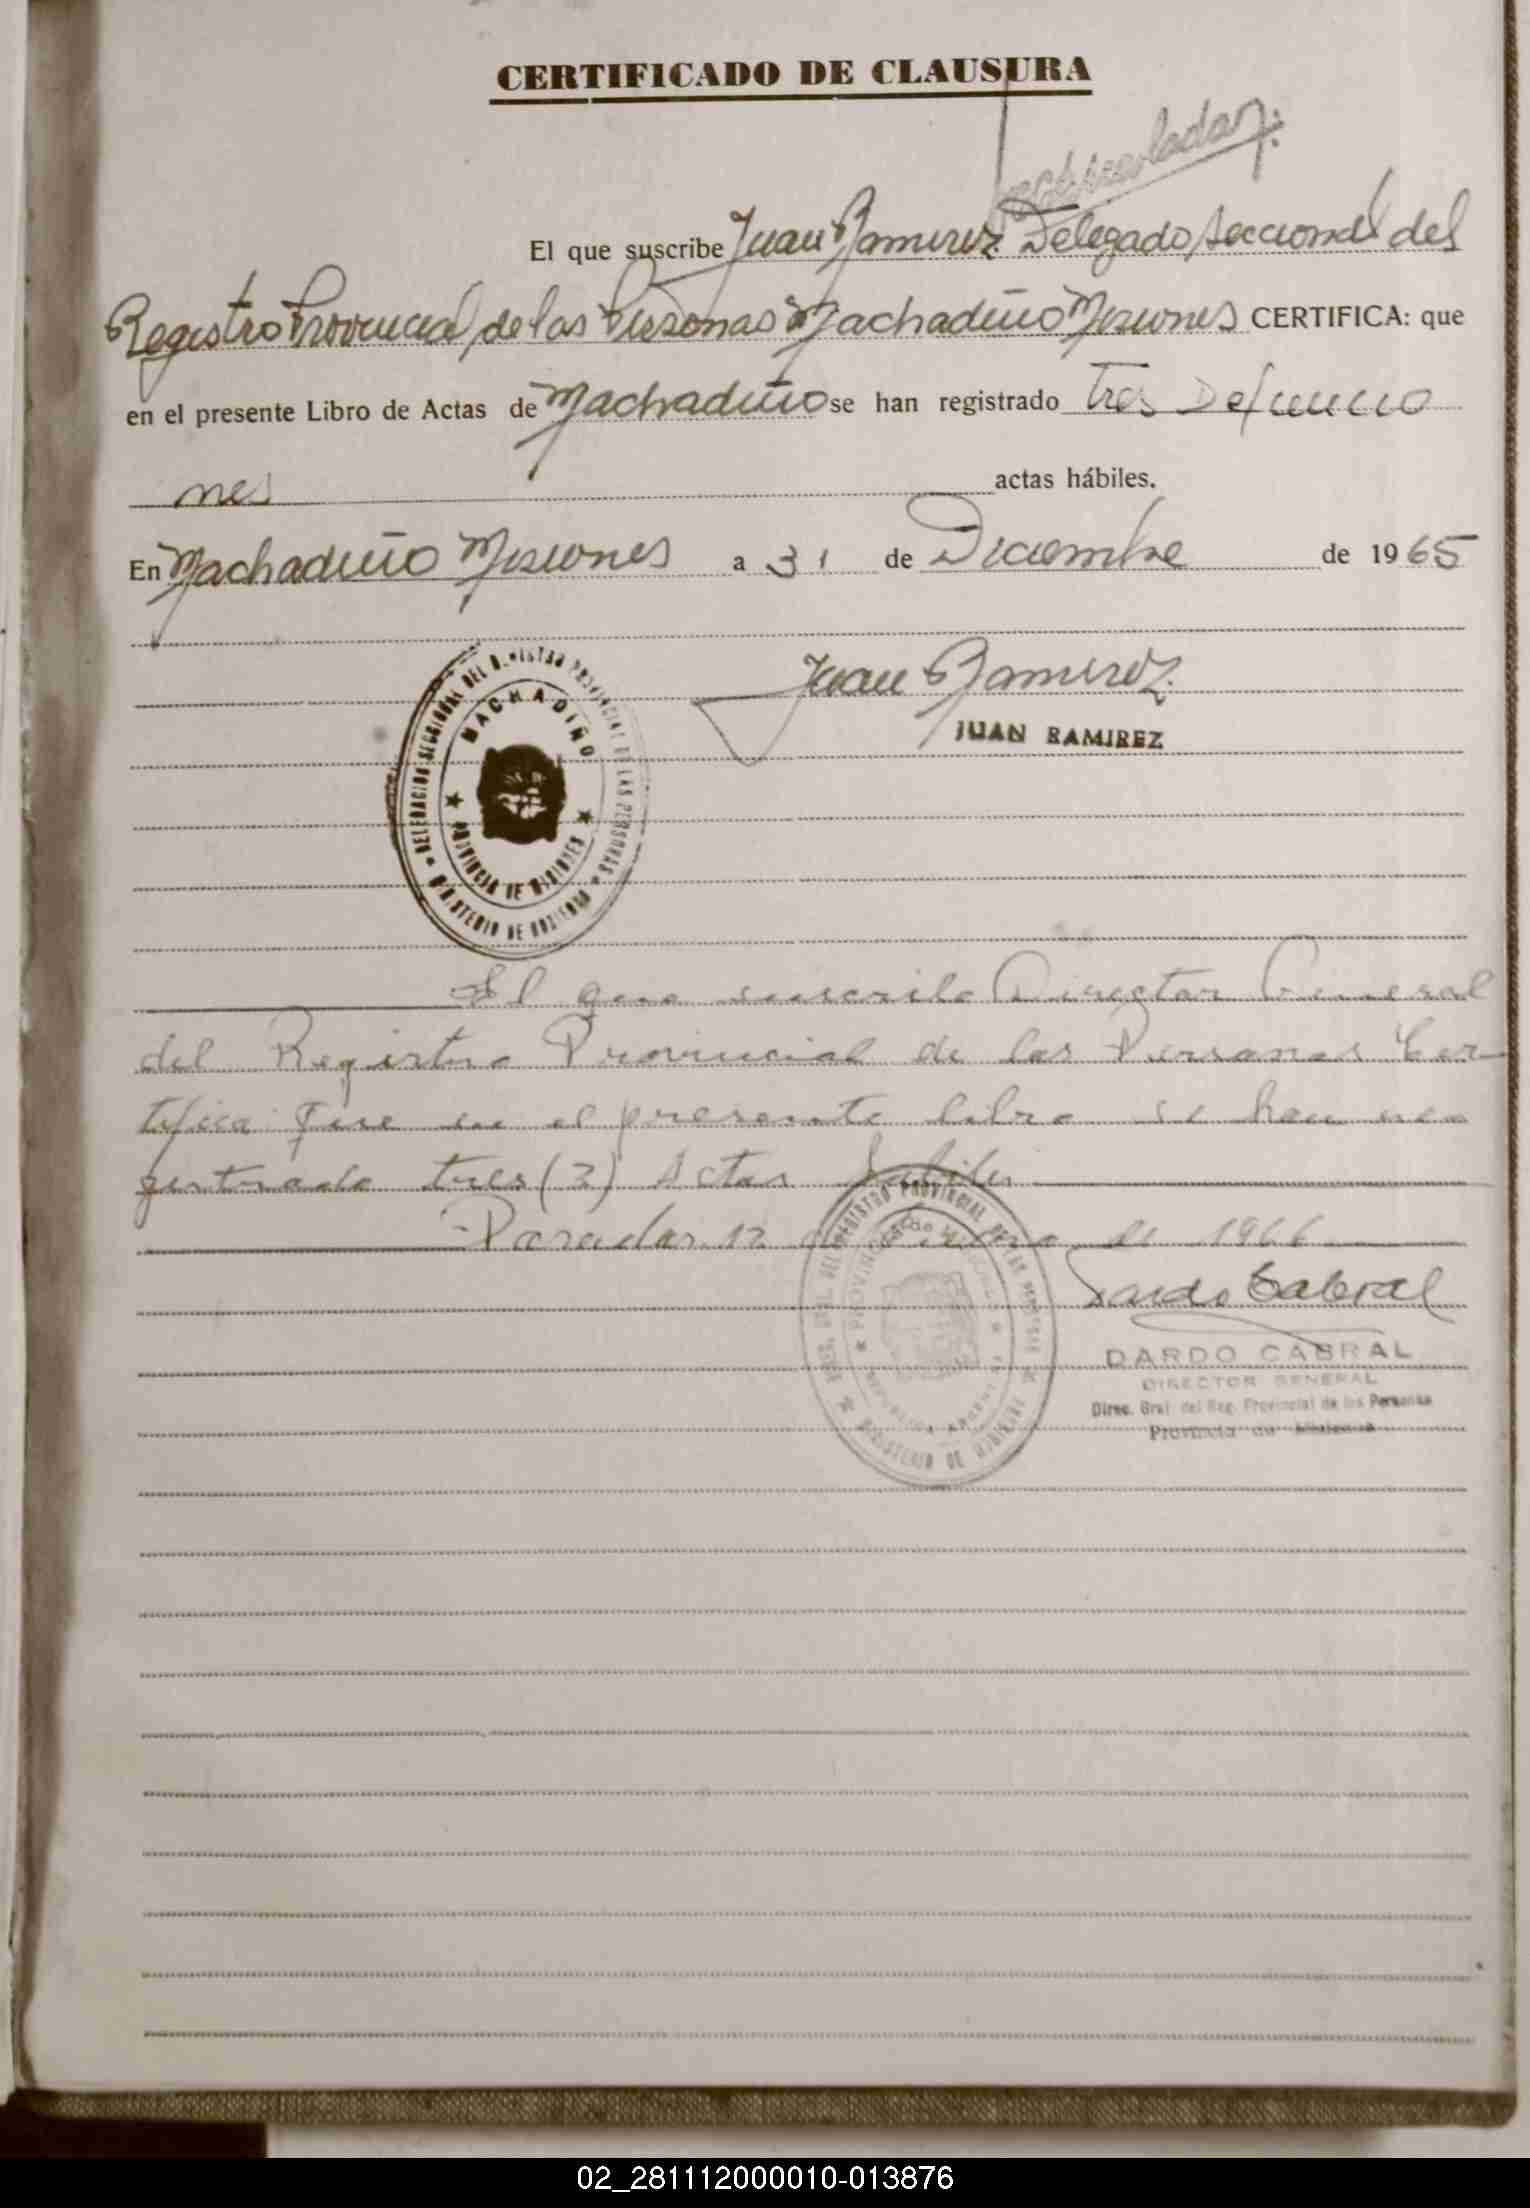 CERTIFICADO DE CLAUSURA
El que suscribe Juan Ramirez Delegado Seccional del
Registro Provincial de las Personas Machadiño Misiones CERTIFICA: que
en el presente Libro de Actas de Machadiño se han registrado tres Defuncio
nes actas hábiles.
En Machadiño Misiones a 31 de Diciembre de 1965
Juan Ramirez
JUAN RAMIREZ
DELEGACION SECCIONAL DEL REGISTRO PROVINCIAL DE LAS PERSONAS
MACHADIÑO
PROVINCIA DE MISIONES
MINISTERIO DE GOBIERNO
El que suscribe Director General
del Registro Provincial de las Personas Cer-
tifica: Que en el presente libro se han re
gistrado tres (3) Actas habiles
Posadas 12 de Enero de 1966
Dardo Cabral
DARDO CABRAL
DIRECTOR GENERAL
Direc. Gral. del Reg. Provincial de las Personas
Provincia de Misiones
DIREC. GRAL. DEL REGISTRO PROVINCIAL DE LAS PERSONAS
MINISTERIO DE GOBIERNO
02_281112000010-013876